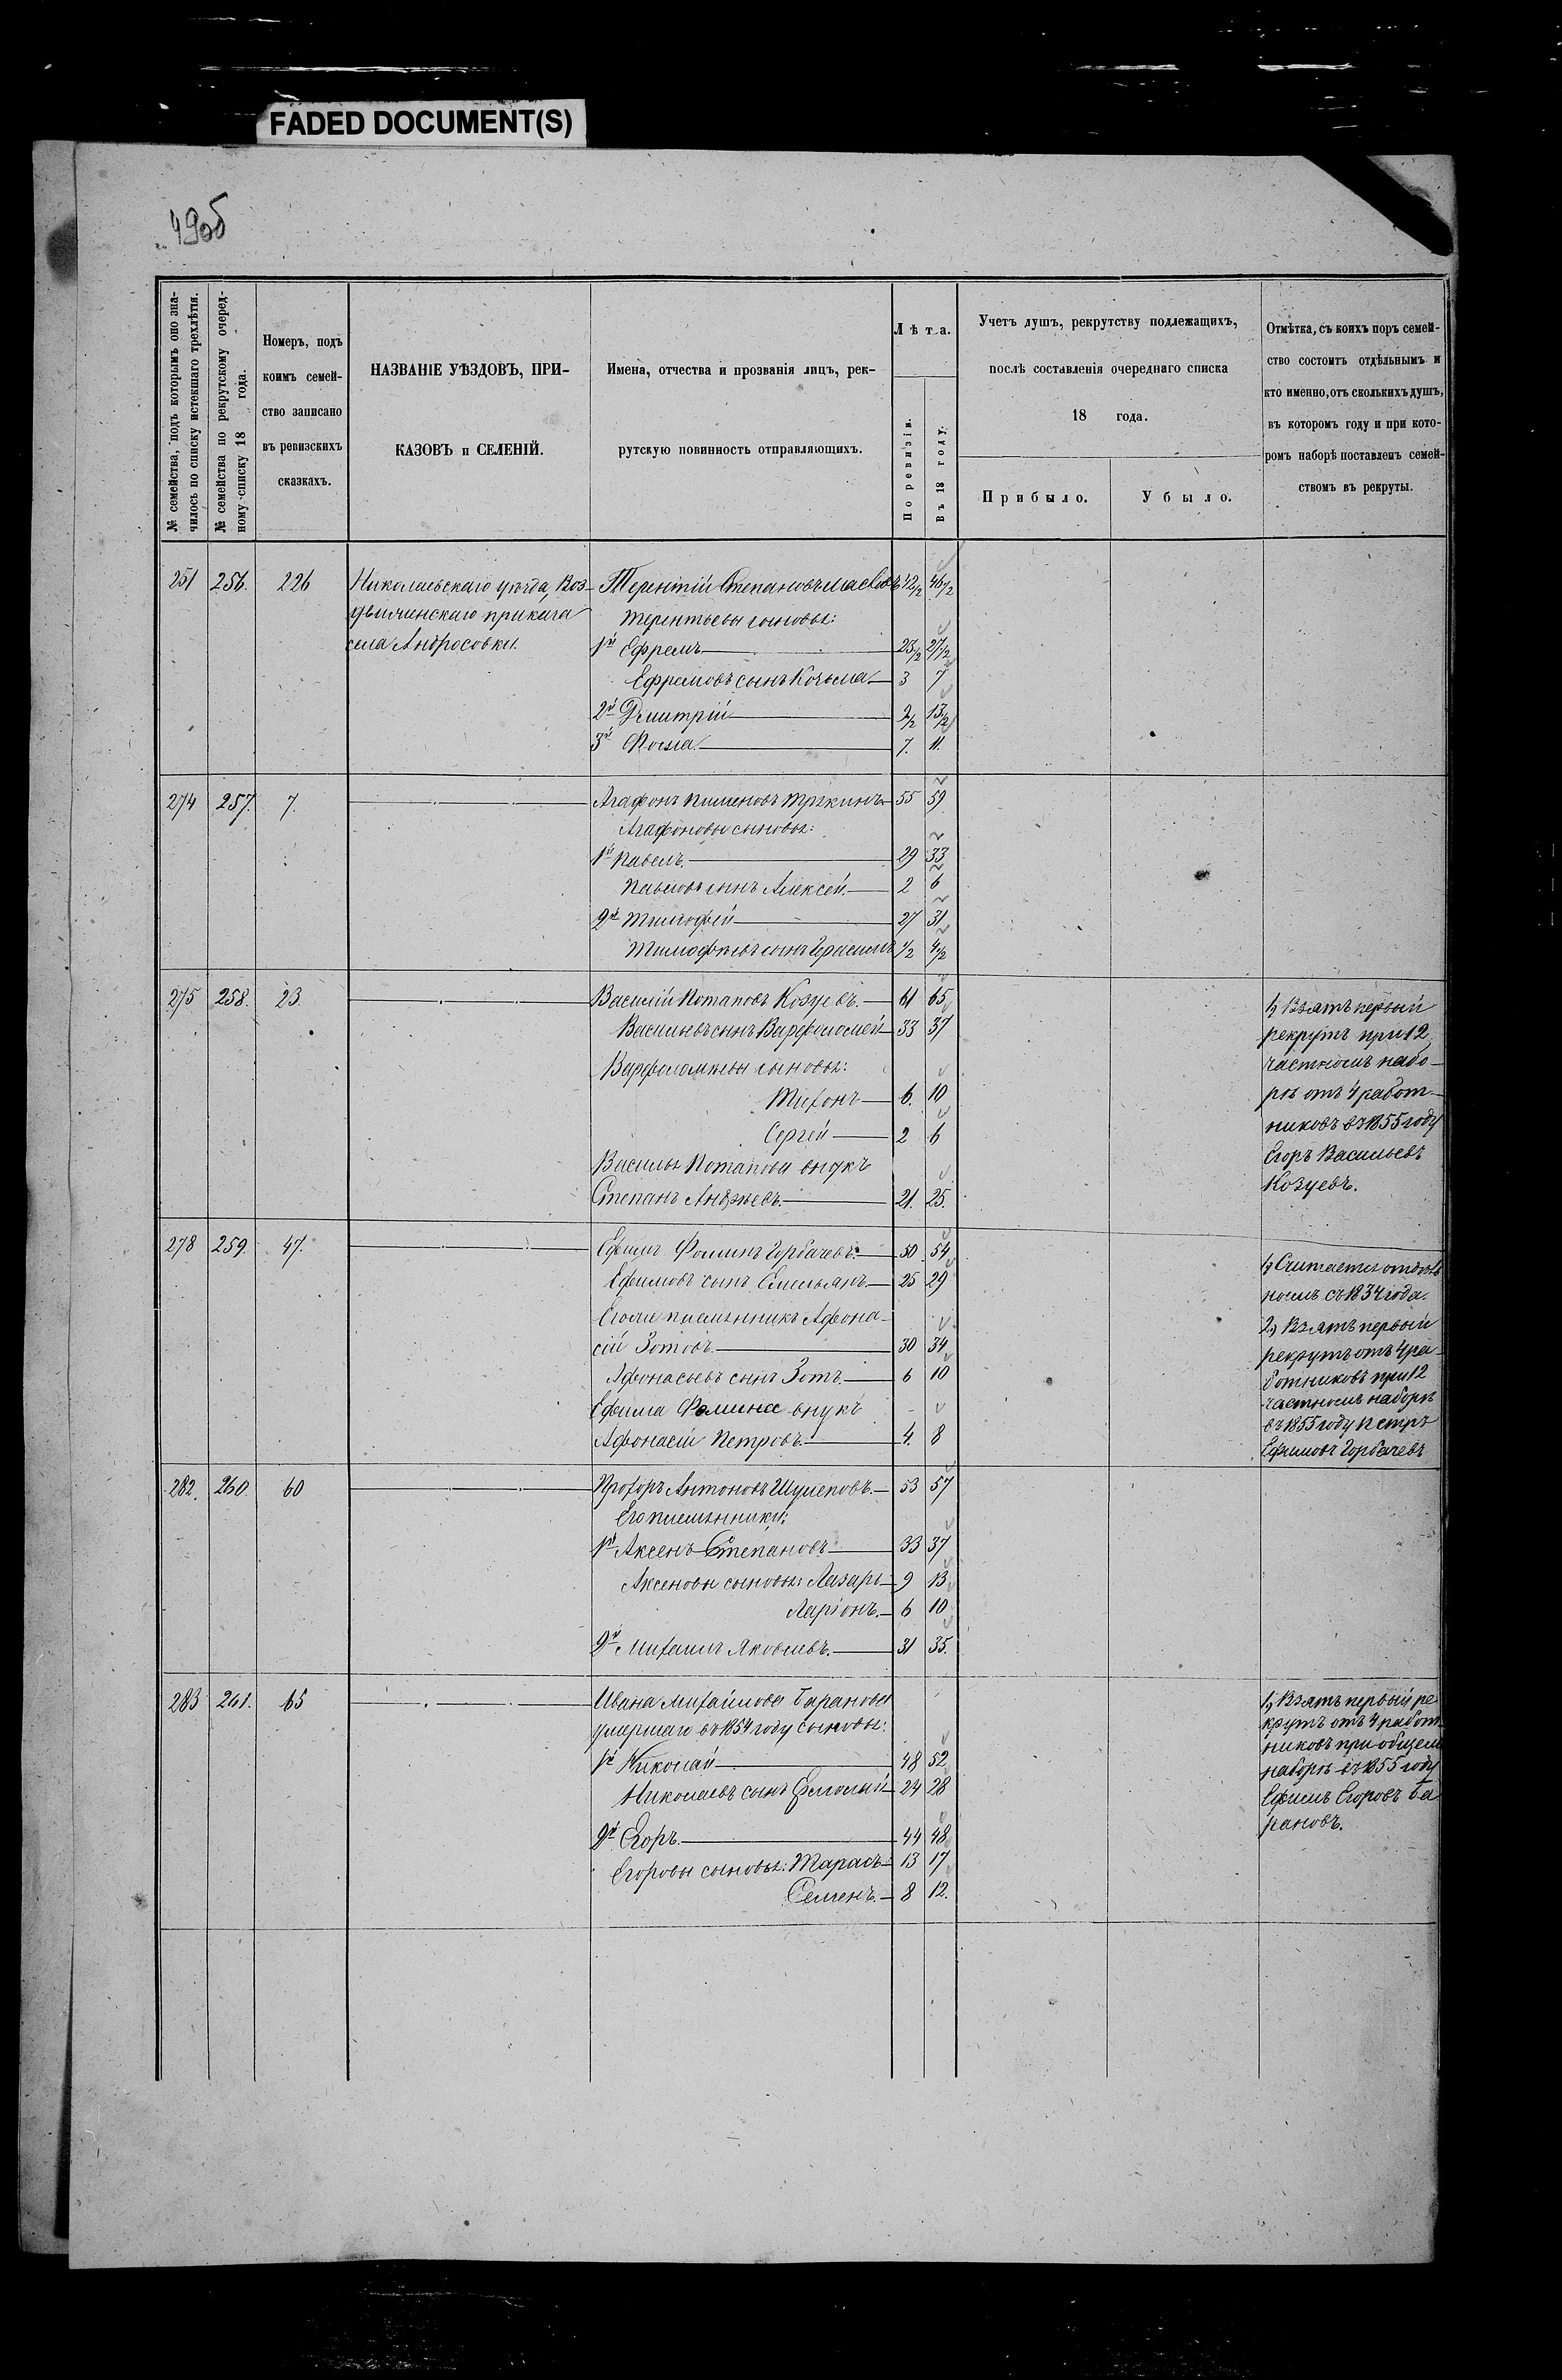 FADED DOCUMENT(S)
49об
№ семейства, подъ которымъ оно зна-
чилось по списку истекшаго трехлѣтія.
№ семейства по рекрутскому очеред-
ному списку 18 года.
Номеръ, подъ
коимъ семей-
ство записано
въ ревизскихъ
сказкахъ.
НАЗВАНІЕ УѢЗДОВЪ, ПРИ-
КАЗОВЪ и СЕЛЕНІЙ.
Имена, отчества и прозванія лицъ, рек-
рутскую повинность отправляющихъ.
Лѣта.
По ревизіи.
Въ 18 году.
Учетъ душъ, рекрутству подлежащихъ,
послѣ составленія очереднаго списка
18 года.
Прибыло.
Убыло.
Отмѣтка, съ коихъ поръ семей-
ство состоитъ отдѣльнымъ и
кто именно, отъ сколькихъ душъ,
въ котормъ году и при кото-
ромъ наборѣ поставленъ семей-
ствомъ въ рекруты.
251 256. 226 Николаевскаго уѣзда, Воз- Терентій Степановъ 42 1/2 46 1/2
движенскаго приказа Терентьевы сыновья:
села Андросовки. 1й Ефремъ 23 1/2 27 1/2
Ефремовъ сынъ Козьма 3 7
2й Дмитрій 13 1/2
3й Фома 7. 11.
274 257. 7. Агафонъ Пименовъ 55 59
Агафоновы сыновья:
1й Павелъ. 29 33
Павловъ сынъ Алексей. 2 6
2й Тимофей 27 31
Тимофеевъ сынъ Герасимъ 1/2 4 1/2
275 258. 23 Василій Потаповъ Козуевъ. 61 65
Васильевъ сынъ Варфоломей 33 37
Варфоломеевы сыновья:
Тихонъ 6. 10
Сергей 2 6
Василья Потапова внукъ
Степанъ Андреевъ. 21. 25.
1, Взятъ первый
рекрутъ при 12
частномъ набо-
рѣ отъ 4 работ-
никовъ въ 1855 году
Егоръ Васильевъ
Козуевъ.
278 259. 47. Ефимъ Фоминъ Горбачевъ. 50 54
Ефимовъ сынъ Емельянъ. 25 29
Егоже племянникъ Афона-
сій Зотовъ. 30 34
Афонасьевъ сынъ Зотъ. 6 10
Ефима Фомина внукъ
Афонасій Петровъ. 4. 8
1, Считается отдѣль
нымъ съ 1834 года.
2, Взятъ первый
рекрутъ отъ 4 ра-
ботниковъ при 12
частномъ наборѣ
въ 1855 году Петръ
Ефимовъ Горбачевъ
282. 260. 60 Прохоръ Антоновъ Шулеповъ. 53 57
Его племянники:
1й Аксенъ Степановъ 33 37
Аксеновы сыновья: Лазарь 9 13
Ларіонъ. 6 10
2й Михаилъ Яковлевъ. 31 35.
283 261. 65 Ивана Михайлова Баранова
умершаго въ 1854 году сыновья:
1й Николай 48 52
Николаевъ сынъ 24 28
2й Егоръ. 44 48
Егоровы сыновья: Тарасъ 13 17
Семенъ. 8 12.
1, Взятъ первый ре
крутъ отъ 4 работ
никовъ при общемъ
наборѣ въ 1855 году
Ефимъ Егоровъ Ба
рановъ.